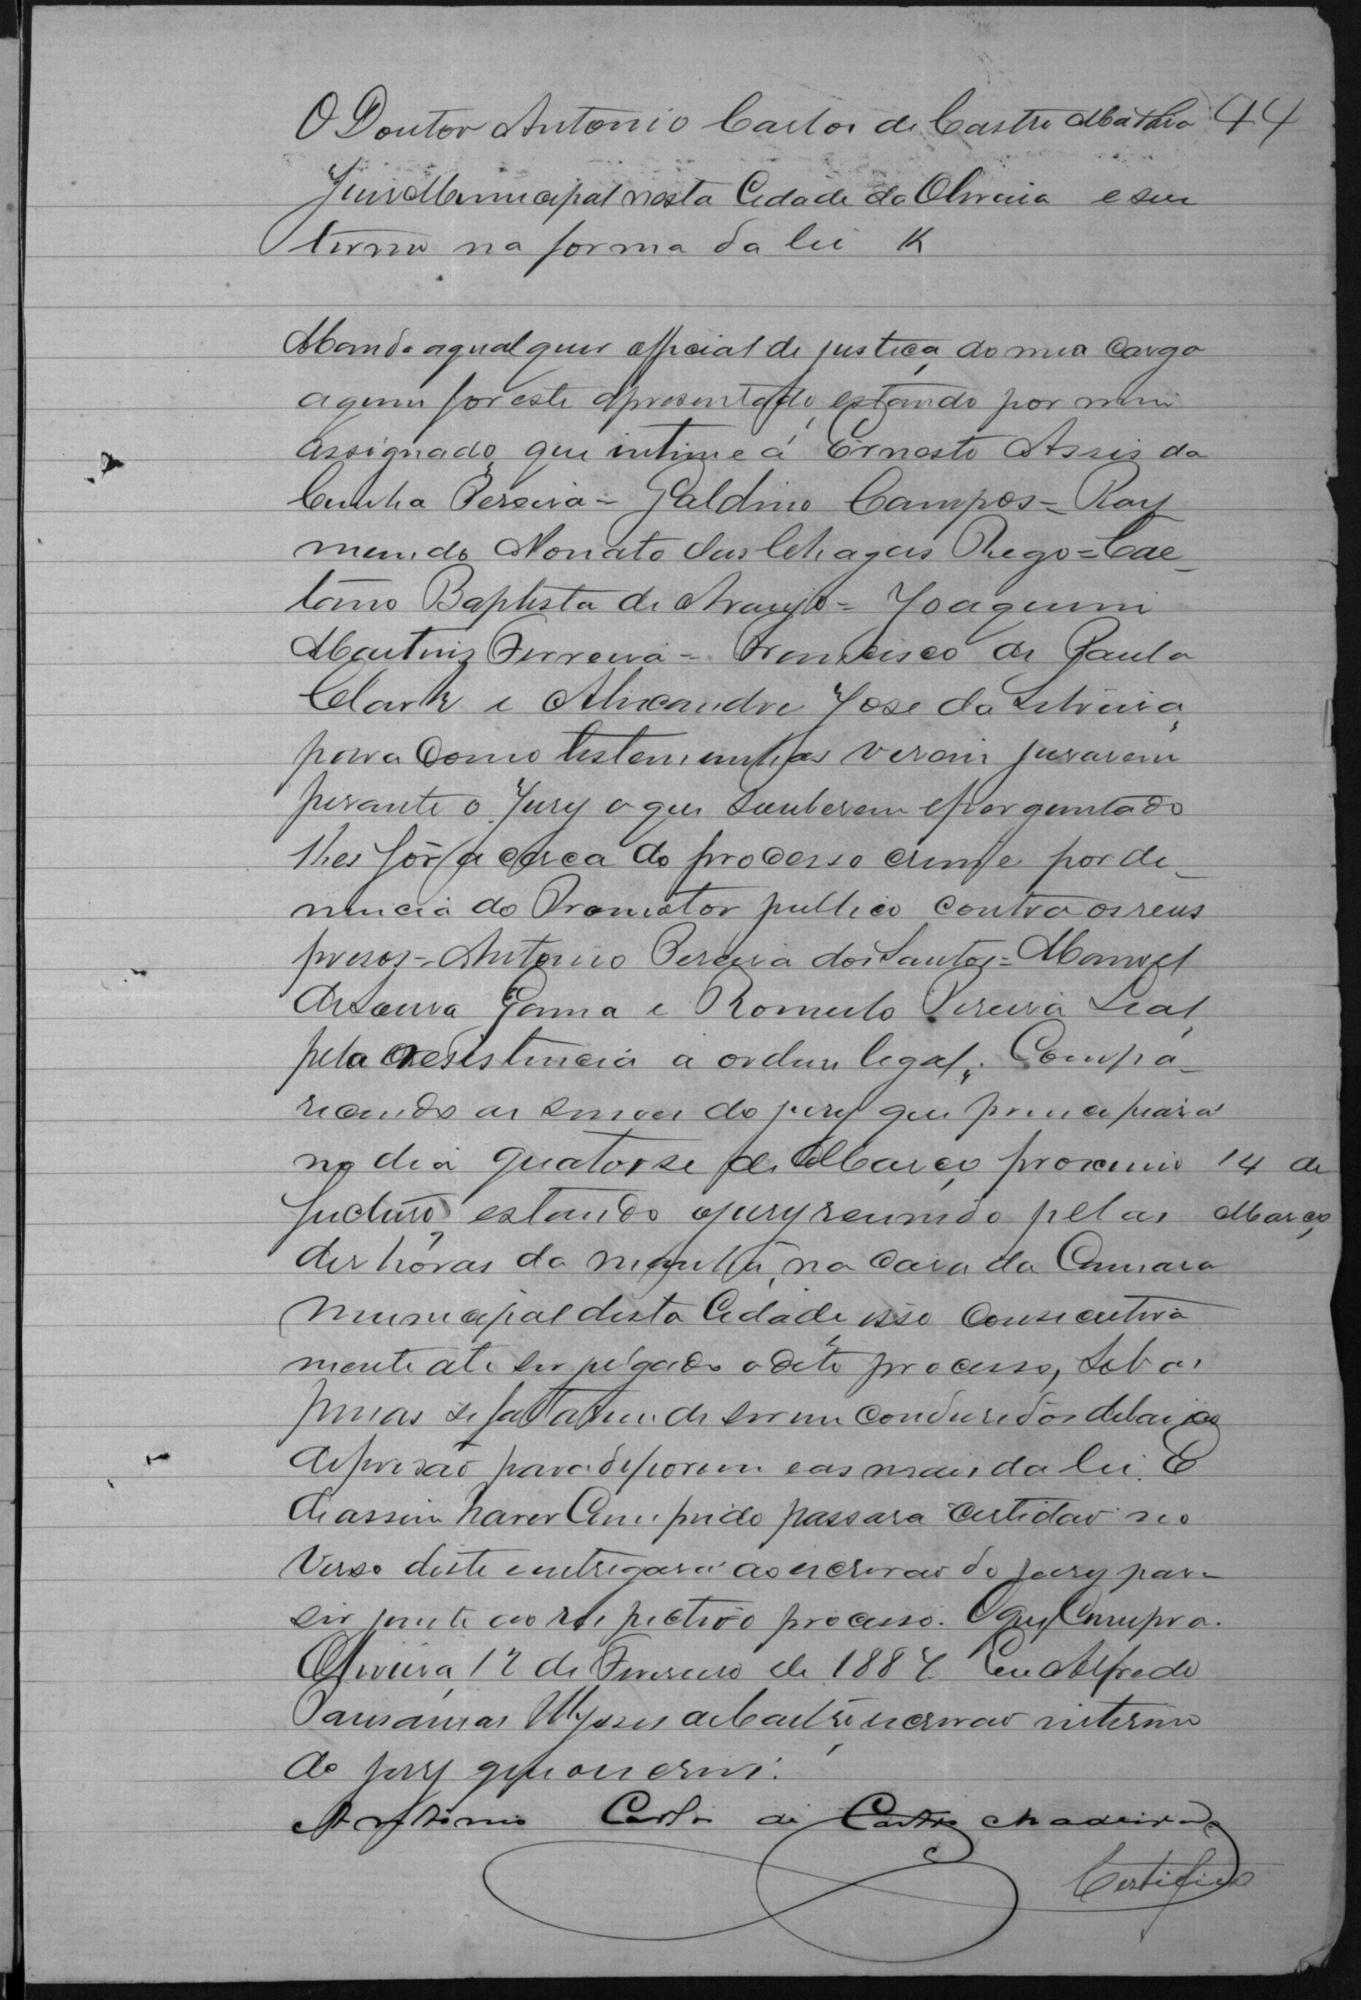 O Doutor Antonio Carlos de Castro Madeira 44
Juis Municipal nesta Cidade da Oliveira e seu
termo na forma da lei &
Mando a qualquer official de justiça do meu cargo
a quem for este apresentado, estando por mim
assignado, que intime á Ernesto Assis da
Cunha Pereira = Galdino Campos = Ray
mundo Nonato das Chagas Rego = Cae_
tano Baptista de Araujo = Joaquim
Martins Ferreira = Francisco de Paula
Clark e Alixandre Jose da Silveira,
para como testemunhas virem jurarem
perante o Jury o que souberem e perguntado
lhes fôr a cerca do processo crime por de_
nuncia do Promotor publico contra os reus
presos = Antonio Pereira dos Santos = Manoel
de Sousa Gama e Romulo Pereira Leal,
pela resistencia a ordem legal; Compa_
recendo as do jury que principiará
no dia quatorse de Março proximo 14 de
fucturo, estando o jury reunido pelas Março
des hóras da manhã, na casa da Camara
Municipal desta Cidade, isso consecutiva
mente ate ser julgado o dito processo, sob as
penas se faltarem de serem condusidos debaixo
de prisão para deporem e as mais da lei. E
de assim haver Cumprido passará certidão no
verso deste e entregará ao escrivão do jury para
ser junto ao respectivo processo. O que Cumpra.
Oliveira, 12 de Fevereiro de 1887 Eu Alfredo
Pausanias Ulysses de Castro, escrivão interino
do jury que o escrevi.
Antonio Carlos de Castro Madeira
Certifico